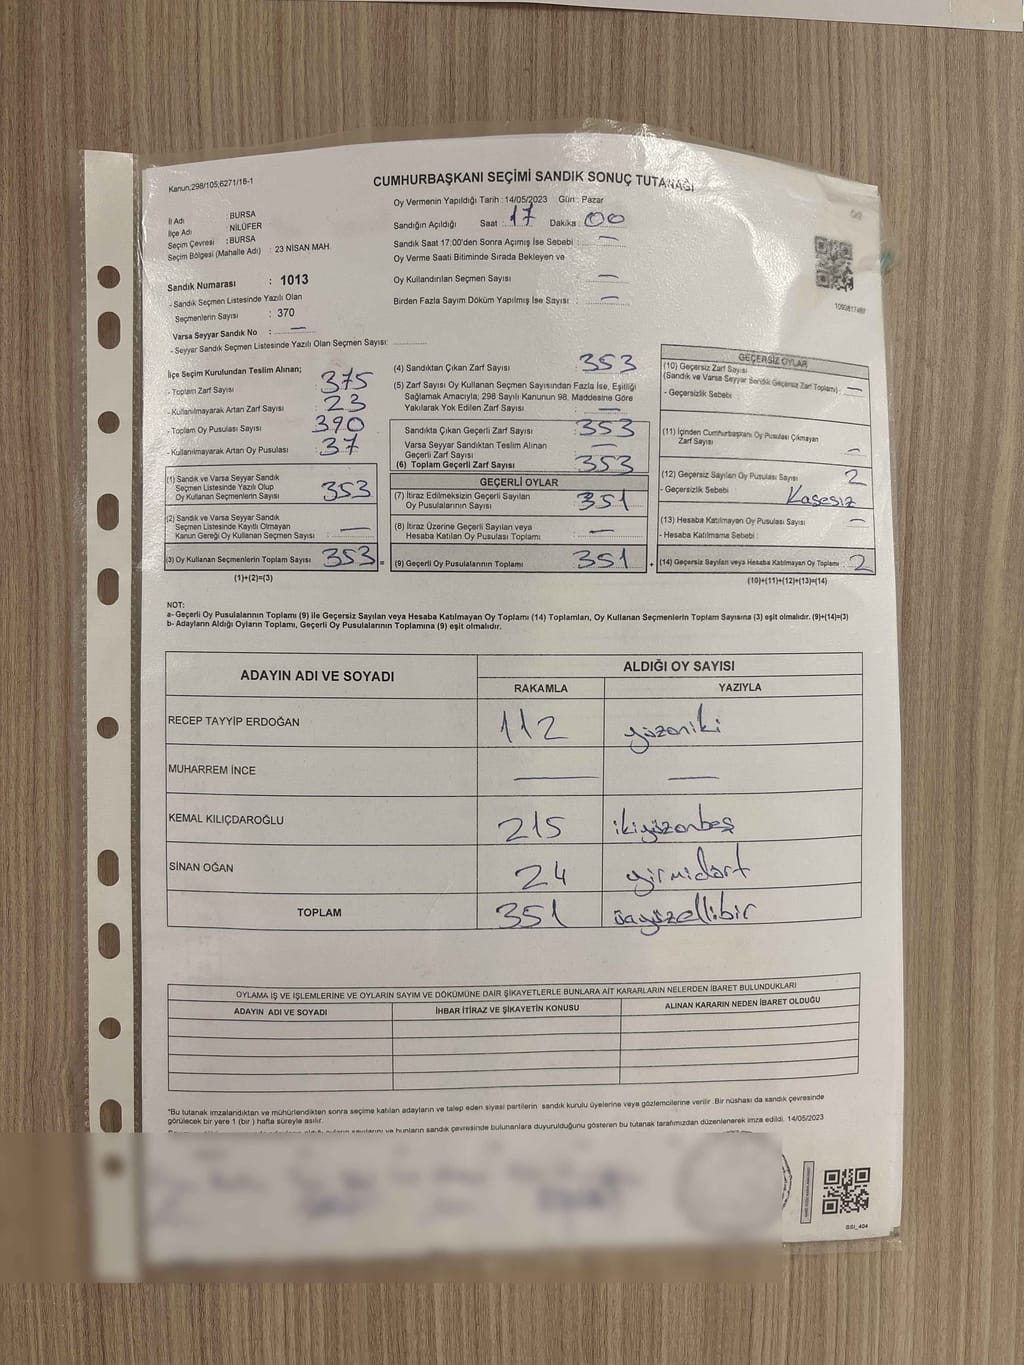 Kanun;298/105;6271/16-1
CUMHURBAŞKANI SEÇİMİ SANDIK SONUÇ TUTANAĞI
İl Adı : BURSA
İlçe Adı : NİLÜFER
Seçim Çevresi : BURSA
Seçim Bölgesi (Mahalle Adı) : 23 NİSAN MAH.
Sandık Numarası : 1013
- Sandık Seçmen Listesinde Yazılı Olan
Seçmenlerin Sayısı : 370
Varsa Seyyar Sandık No : —
- Seyyar Sandık Seçmen Listesinde Yazılı Olan Seçmen Sayısı:
Oy Vermenin Yapıldığı Tarih : 14/05/2023 Gün : Pazar
Sandığın Açıldığı Saat : 17 Dakika : 00
Sandık Saat 17:00'den Sonra Açımış İse Sebebi : —
Oy Verme Saati Bitiminde Sırada Bekleyen ve
Oy Kullandırılan Seçmen Sayısı —
Birden Fazla Sayım Döküm Yapılmış İse Sayısı : —
İlçe Seçim Kurulundan Teslim Alınan;
- Toplam Zarf Sayısı : 375
- Kullanılmayarak Artan Zarf Sayısı : 23
- Toplam Oy Pusulası Sayısı : 390
- Kullanılmayarak Artan Oy Pusulası : 37
(1) Sandık ve Varsa Seyyar Sandık
Seçmen Listesinde Yazılı Olup
Oy Kullanan Seçmenlerin Sayısı : 353
(2) Sandık ve Varsa Seyyar Sandık
Seçmen Listesinde Kayıtlı Olmayan
Kanun Gereği Oy Kullanan Seçmen Sayısı : —
(3) Oy Kullanan Seçmenlerin Toplam Sayısı : 353 =
(1)+(2)=(3)
(4) Sandıktan Çıkan Zarf Sayısı : 353
(5) Zarf Sayısı Oy Kullanan Seçmen Sayısından Fazla İse, Eşitliği
Sağlamak Amacıyla; 298 Sayılı Kanunun 98. Maddesine Göre
Yakılarak Yok Edilen Zarf Sayısı : —
Sandıkta Çıkan Geçerli Zarf Sayısı : 353
Varsa Seyyar Sandıktan Teslim Alınan
Geçerli Zarf Sayısı : —
(6) Toplam Geçerli Zarf Sayısı : 353
GEÇERLİ OYLAR
(7) İtiraz Edilmeksizin Geçerli Sayılan
Oy Pusulalarının Sayısı : 351
(8) İtiraz Üzerine Geçerli Sayılan veya
Hesaba Katılan Oy Pusulası Toplamı : —
(9) Geçerli Oy Pusulalarının Toplamı : 351 +
1090817487
GEÇERSİZ OYLAR
(10) Geçersiz Zarf Sayısı
(Sandık ve Varsa Seyyar Sandık Geçersiz Zarf Toplamı) : —
- Geçersizlik Sebebi
(11) İçinden Cumhurbaşkanı Oy Pusulası Çıkmayan
Zarf Sayısı —
(12) Geçersiz Sayılan Oy Pusulası Sayısı : 2
- Geçersizlik Sebebi Kaşesiz
(13) Hesaba Katılmayan Oy Pusulası Sayısı : —
- Hesaba Katılmama Sebebi :
(14) Geçersiz Sayılan veya Hesaba Katılmayan Oy Toplamı : 2
(10)+(11)+(12)+(13)=(14)
NOT:
a- Geçerli Oy Pusulalarının Toplamı (9) ile Geçersiz Sayılan veya Hesaba Katılmayan Oy Toplamı (14) Toplamları, Oy Kullanan Seçmenlerin Toplam Sayısına (3) eşit olmalıdır. (9)+(14)=(3)
b- Adayların Aldığı Oyların Toplamı, Geçerli Oy Pusulalarının Toplamına (9) eşit olmalıdır.
ADAYIN ADI VE SOYADI
ALDIĞI OY SAYISI
RAKAMLA YAZIYLA
RECEP TAYYİP ERDOĞAN 112 yüzoniki
MUHARREM İNCE — —
KEMAL KILIÇDAROĞLU 215 ikiyüzonbeş
SİNAN OĞAN 24 yirmidört
TOPLAM 351 üçyüzellibir
OYLAMA İŞ VE İŞLEMLERİNE VE OYLARIN SAYIM VE DÖKÜMÜNE DAİR ŞİKAYETLERLE BUNLARA AİT KARARLARIN NELERDEN İBARET BULUNDUKLARI
ADAYIN ADI VE SOYADI İHBAR İTİRAZ VE ŞİKAYETİN KONUSU ALINAN KARARIN NEDEN İBARET OLDUĞU
*Bu tutanak imzalandıktan ve mühürlendikten sonra seçime katılan adayların ve talep eden siyasi partilerin sandık kurulu üyelerine veya gözlemcilerine verilir .Bir nüshası da sandık çevresinde
görülecek bir yere 1 (bir ) hafta süreyle asılır.
oyların sayılarını ve bunların sandık çevresinde bulunanlara duyurulduğunu gösteren bu tutanak tarafımızdan düzenlenerek imza edildi. 14/05/2023
GSI_404